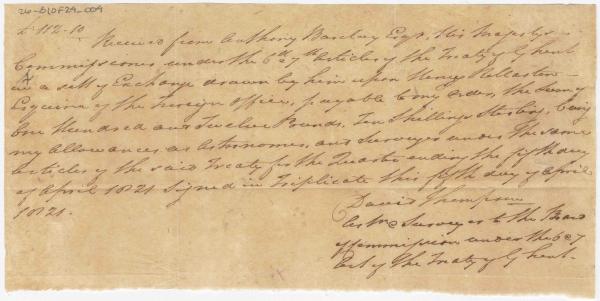 26-B10F29_009
£ 112-10
Received from Anthony Barclay Esqr. His Majestys
Commissioner under the 6 & 7th Articles of the Treaty of Ghent
in a sett of Exchange drawn by him upon Henry Rolleston
Esquire of the Foreign Office, payable to my order, the Sum of
One Hundred and Twelve Pounds, Ten Shillings Sterling, being
my allowances as Astronomer, and Surveyor under the same
Articles of the said Treaty for the Quarter ending the fifth day
of April 1821 Signed in Triplicate this fifth day of April
1821.
David Thompson
Astr & Surveyor to the Board
of Commission under the 6 & 7
Art of the Treaty of Ghent.